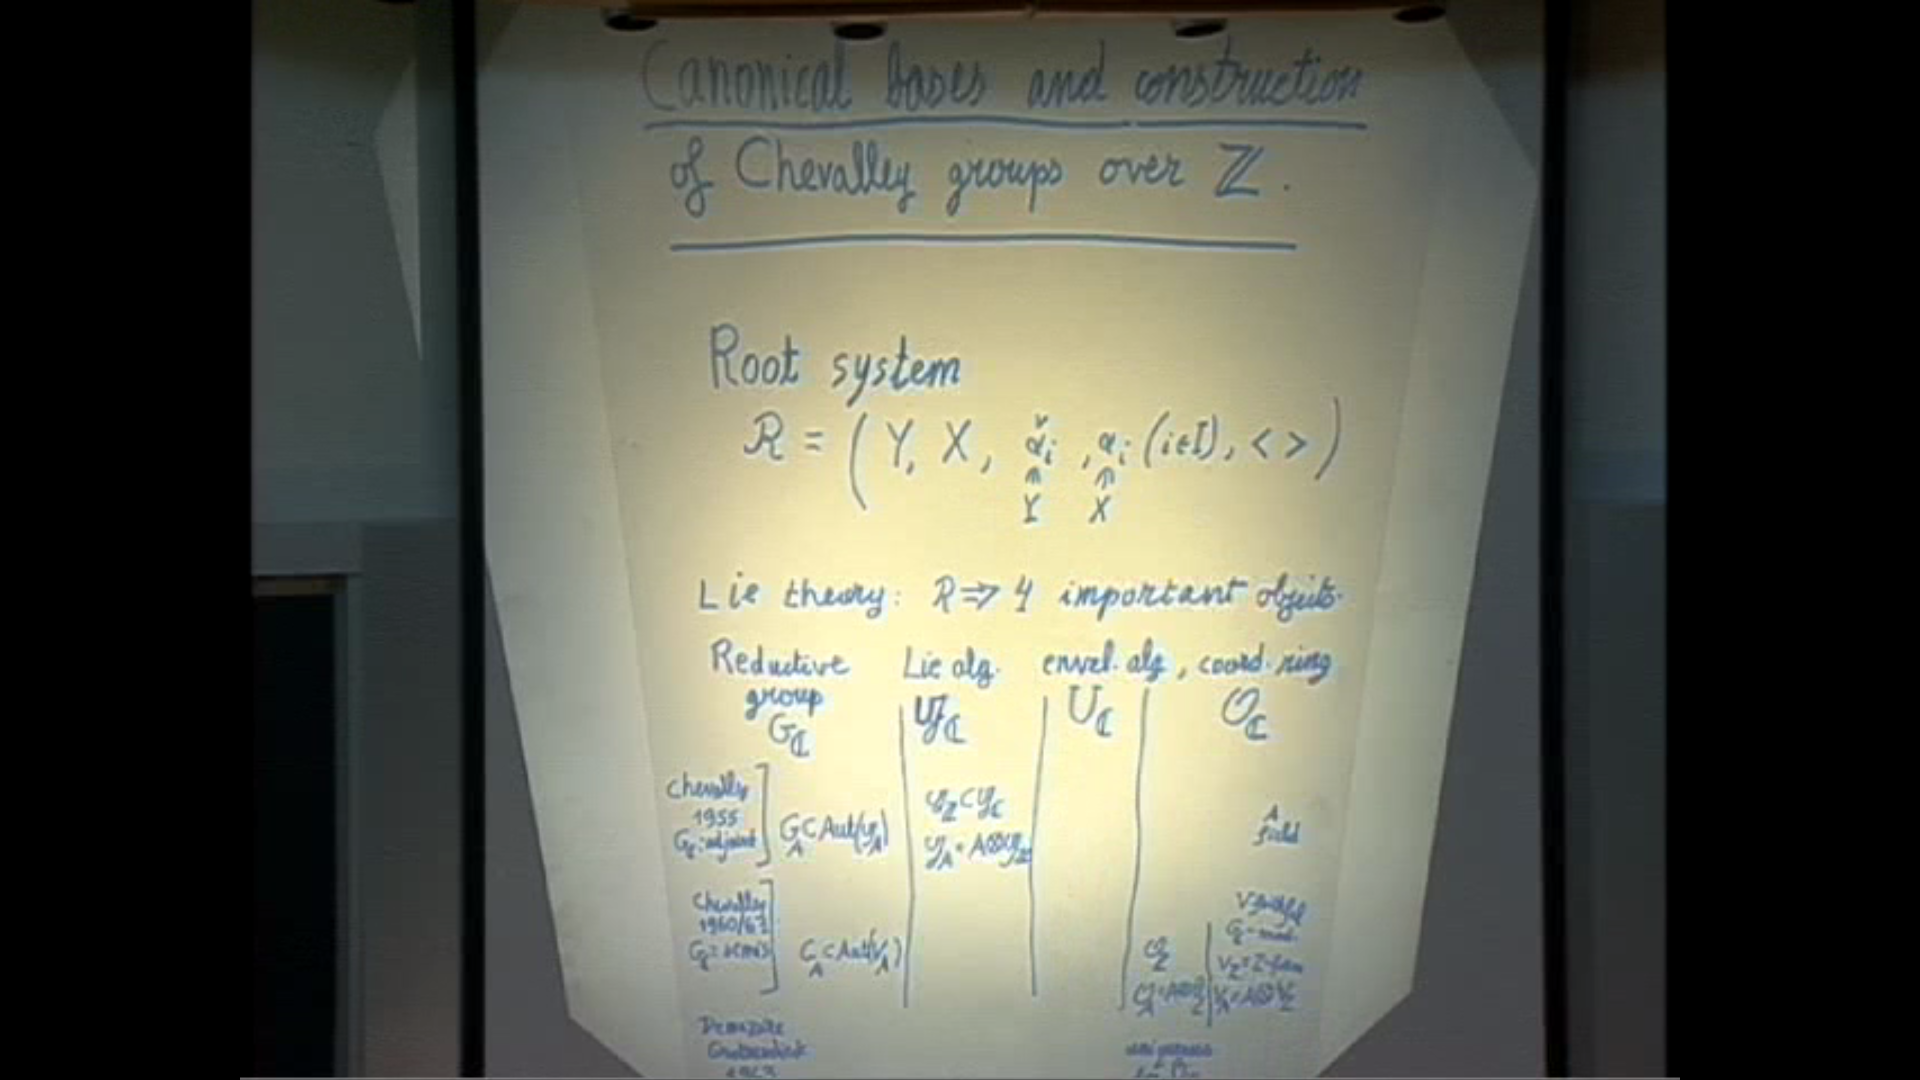 Canonical bases and construction
of Chevalley groups over ℤ.
Root system
R = (Y, X, α̌ᵢ, αᵢ (i∈I), < >)
∩ ∩
Y X
Lie theory: R ⇒ 4 important objects.
Reductive Lie alg. envel. alg, coord. ring
group
G_ℂ 𝔤_ℂ U_ℂ O_ℂ
Chevalley
1955
G_ℂ=adjoint
G_A ⊂ Aut(𝔤_A)
𝔤_ℤ ⊂ 𝔤_ℂ
𝔤_A = A⊗𝔤_ℤ
A
field
Chevalley
1960/61
G_ℂ = semis
G_A ⊂ Aut(V_A)
O_ℤ
O_A = A⊗O_ℤ
V faithful
G_ℂ-mod.
V_ℤ = ℤ-form
V_A = A⊗V_ℤ
Demazure
Grothendieck
1963
uniqueness